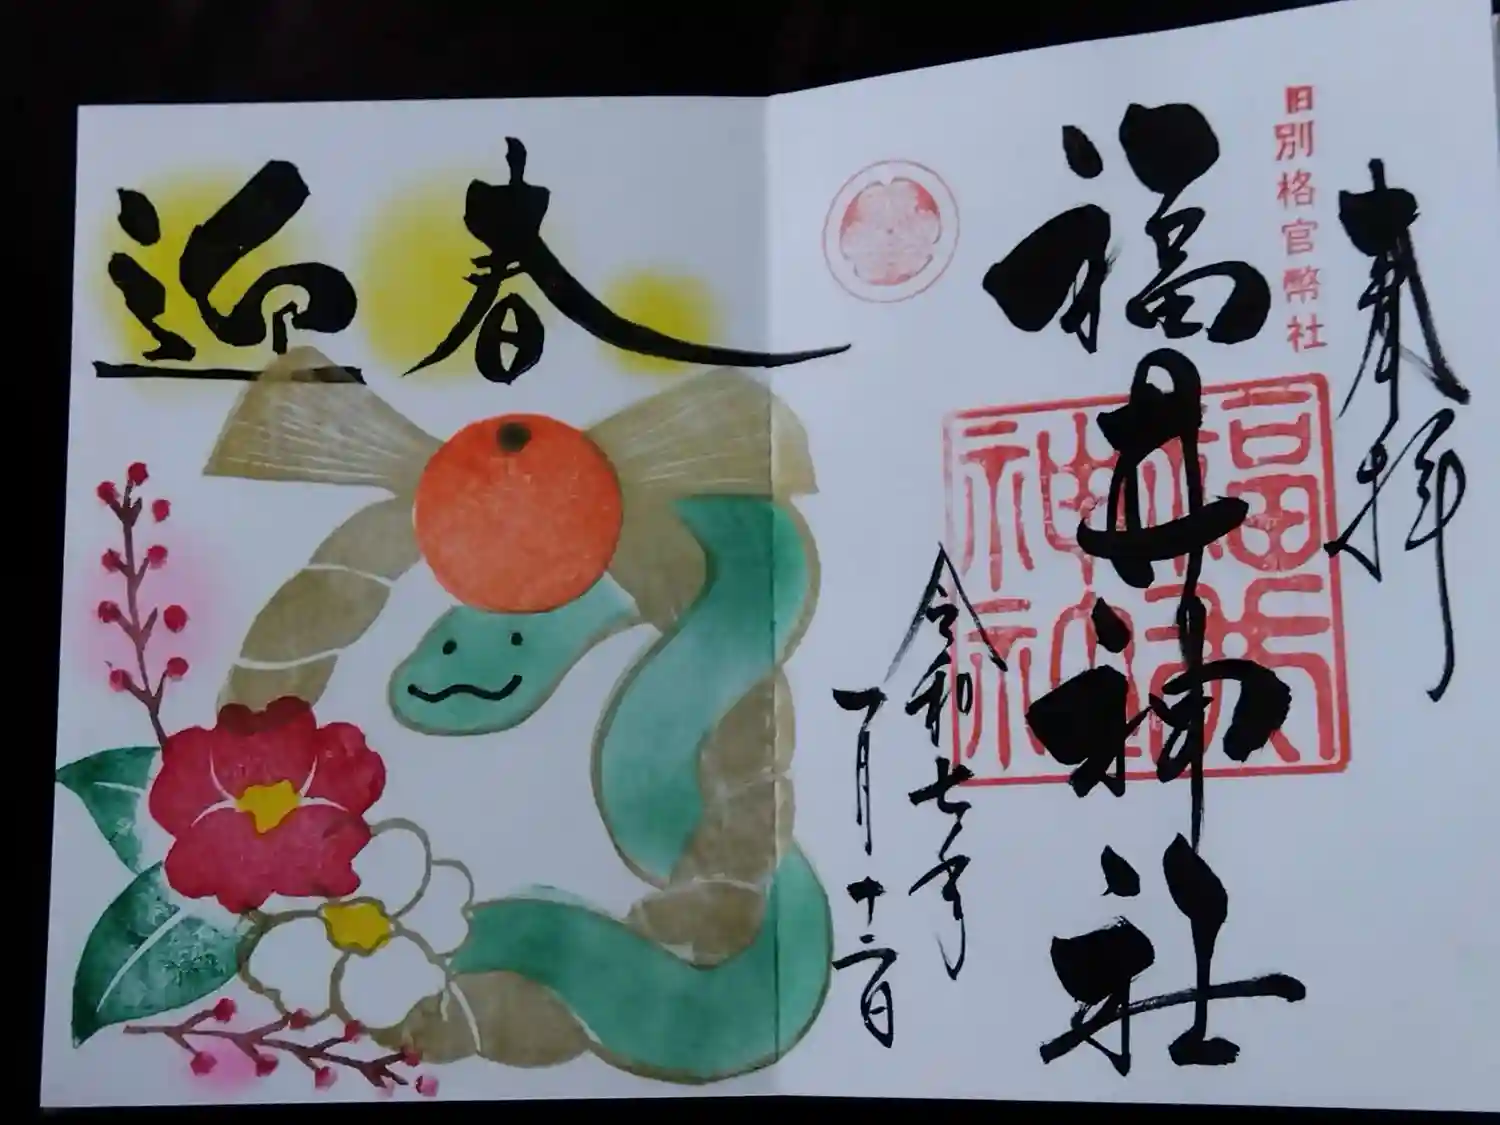 奉拝
旧別格官幣社
福井神社
令和七年
一月十二日
迎春